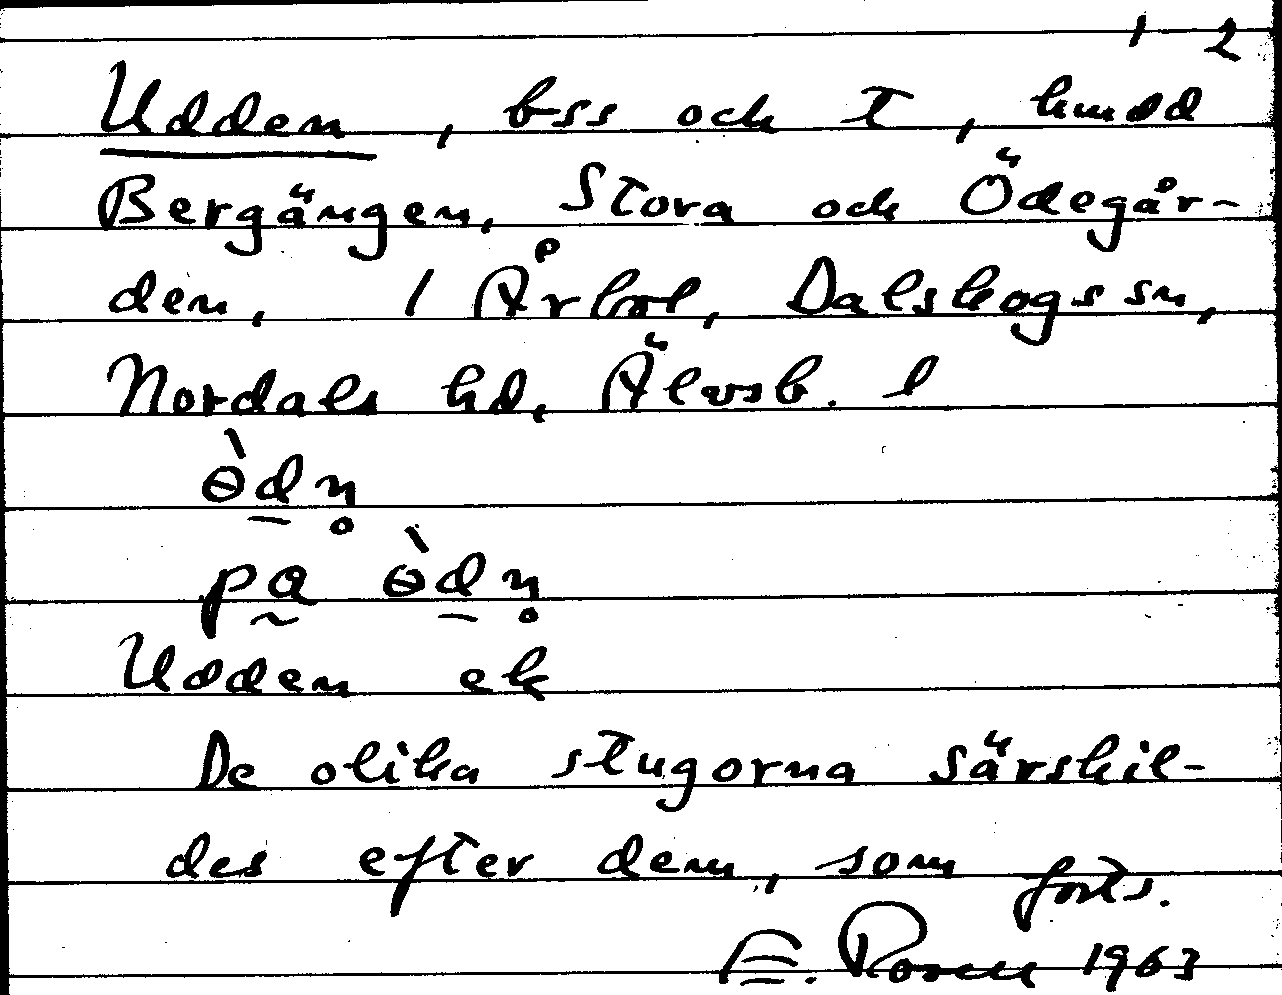 1 2
Udden, bss och t, hmdd
Bergängen, Stora och Ödegår-
den, 1 Årbol, Dalskogs sn,
Nordals hd, Älvsb. l
ɵ̀dn̥
pa ɵ̀dn̥
Udden ek
De olika stugorna särskil-
des efter dem, som forts.
E. Rosell 1963